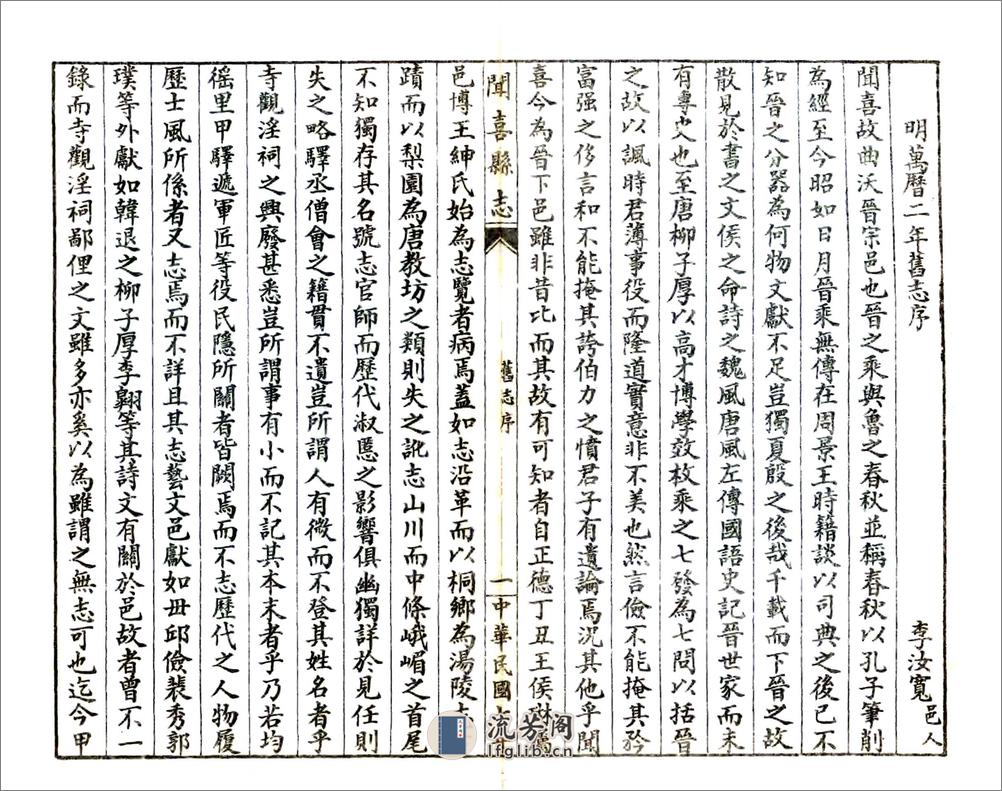 明萬曆二年舊志序
李汝寬邑人
聞喜故曲沃晉宗邑也晉之乘與魯之春秋並稱春秋以孔子筆削
為經至今昭如日月晉乘無傳在周景王時籍談以司典之後已不
知晉之分器為何物文獻不足豈獨夏殷之後哉千載而下晉之故
散見於書之文侯之命詩之魏風唐風左傳國語史記晉世家而未
有專史也至唐柳子厚以高才博學效枚乘之七發為七問以括晉
之故以諷時君薄事役而隆道實意非不美也然言儉不能掩其矜
富强之侈言和不能掩其誇伯力之憤君子有遺論焉況其他乎聞
喜今為晉下邑雖非昔比而其故有可知者自正德丁丑王侯琳
聞喜縣志
舊志序
一
中華民國
邑博王紳氏始為志覽者病焉蓋如志沿革而以桐鄉為湯陵
蹟而以梨園為唐教坊之類則失之訛志山川而中條峨嵋之首尾
不知獨存其名號志官師而歷代淑慝之影響俱幽獨詳於見任則
失之略驛丞僧會之籍貫不遺豈所謂人有微而不登其姓名者乎
寺觀淫祠之興廢甚悉豈所謂事有小而不記其本末者乎乃若均
徭里甲驛遞軍匠等役民隱所關者皆闕焉而不志歷代之人物履
歷士風所係者又志焉而不詳且其志藝文邑獻如毌邱儉裴秀郭
璞等外獻如韓退之柳子厚李翺等其詩文有關於邑故者曾不一
錄而寺觀淫祠鄙俚之文雖多亦奚以為雖謂之無志可也迄今甲
流芳阁
lfglib.cn